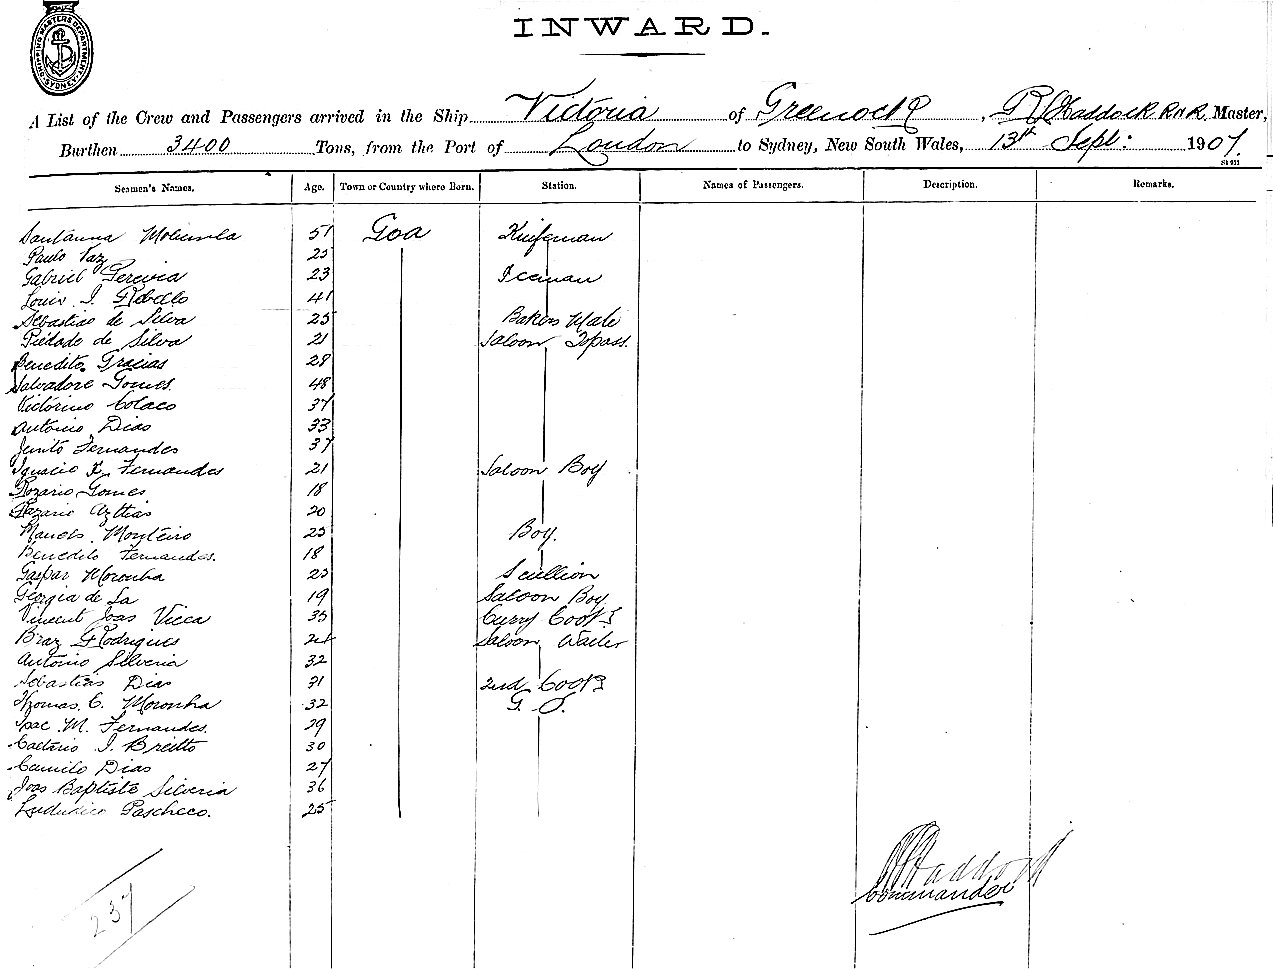 SHIPPING MASTERS DEPARTMENT SYDNEY
INWARD.
A List of the Crew and Passengers arrived in the Ship Victoria of Greenock, Master,
Burthen 3400 Tons, from the Port of London to Sydney, New South Wales, 13th Sept: 1907.
Seamen's Names. Age. Town or Country where Born. Station. Names of Passengers. Description. Remarks.
Santanna 51 Goa Knifeman
Paulo Vaz 25
Gabriel Pereira 23 Iceman
Louis I. Rebello 41
Sebastiao de Silva 25 Bakers Mate
Piedade de Silva 21 Saloon Topass.
Benedito Gracias 28
Salvadore Gomes. 48
Victorino Colaco 37
Antonio Dias 33
Fernandes 37
Ignacio X. Fernandes 21 Saloon Boy
Rozario Gomes 18
20
Manoel Monteiro 25 Boy.
Benedito Fernandes. 18
Gaspar Moronha 23 Scullion
Georgia de La 19 Saloon Boy.
Vincent Joas Viega 35 Curry Cook
Braz Rodrigues 24 Saloon Waiter
Antonio Silveria 32
Sebastiao Dias 31 2nd Cook
Thomas C. Moronha 32 G. S.
Isac M. Fernandes. 29
Caetano I. Breitto 30
Camilo Dias 27
Joas Baptiste Silveria 36
Pascheco. 25
Commander
237